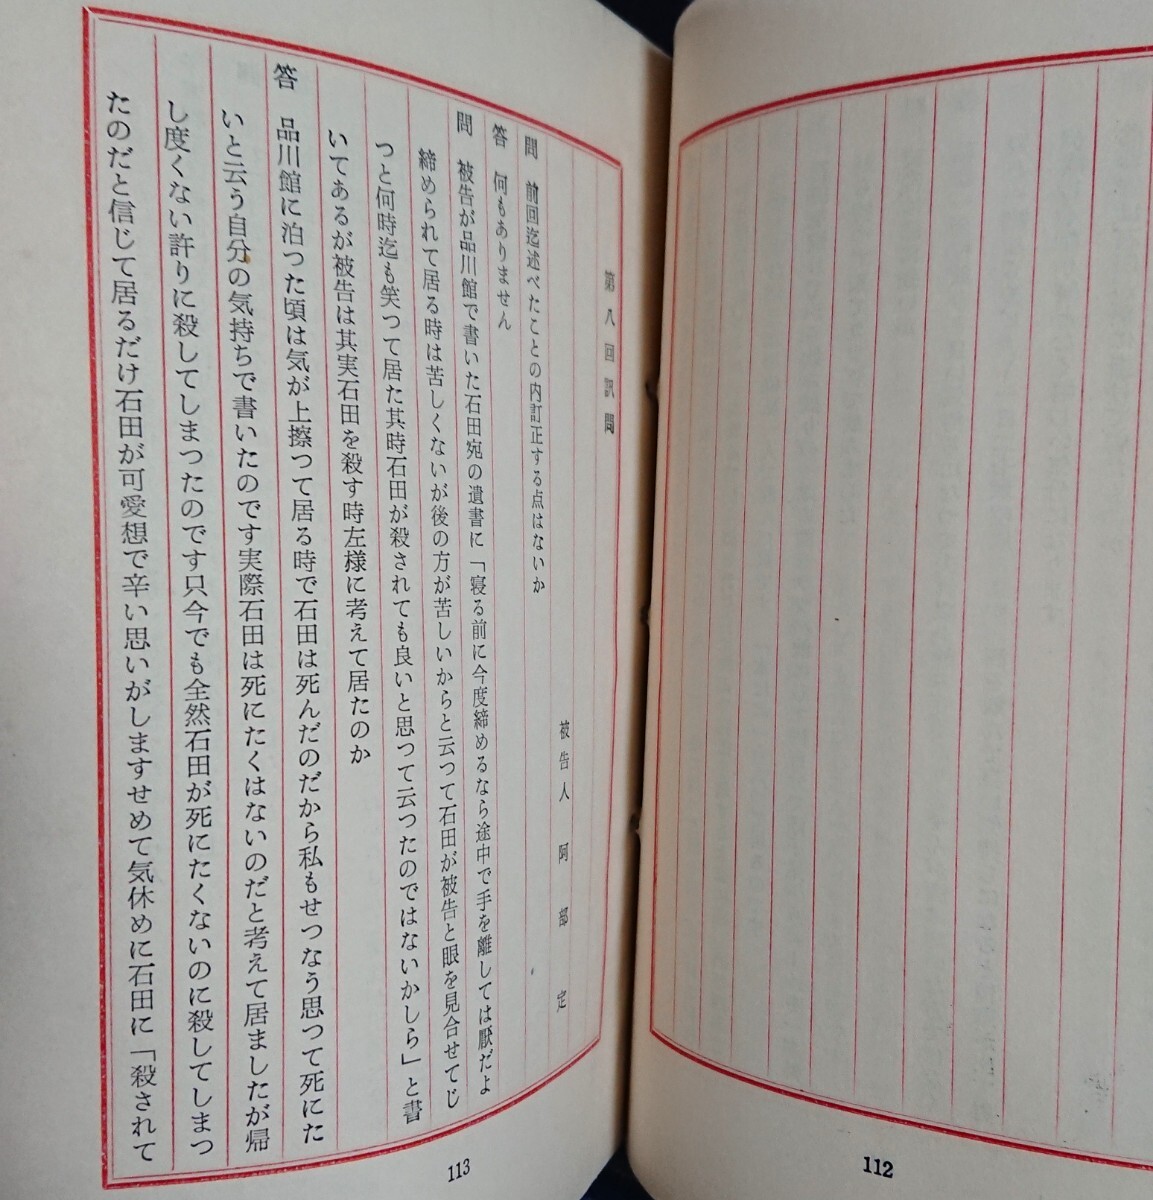 第八回訊問
被告人 阿部定
問 前回迄述べたことの内訂正する点はないか
答 何もありません
問 被告が品川館で書いた石田宛の遺書に「寝る前に今度締めるなら途中で手を離しては厭だよ
締められて居る時は苦しくないが後の方が苦しいからと云つて石田が被告と眼を見合せてじ
つと何時迄も笑つて居た其時石田が殺されても良いと思つて云つたのではないかしら」と書
いてあるが被告は其実石田を殺す時左様に考えて居たのか
答 品川館に泊つた頃は気が上擦つて居る時で石田は死んだのだから私もせつなう思つて死にた
いと云う自分の気持ちで書いたのです実際石田は死にたくはないのだと考えて居ましたが帰
し度くない許りに殺してしまつたのです只今でも全然石田が死にたくないのに殺してしまつ
たのだと信じて居るだけ石田が可愛想で辛い思いがしますせめて気休めに石田に「殺されて
113
112